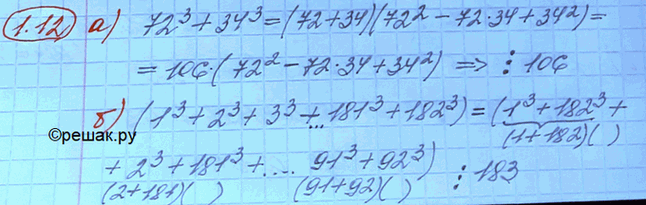 1.12 а) 72³ + 34³ = (72+34)(72² − 72·34 + 34²) =
= 106·(72² − 72·34 + 34²) ⇒ ⋮ 106
б) (1³ + 2³ + 3³ + ... 181³ + 182³) = (1³ + 182³ +
©решак.ру (1+182)( )
+ 2³ + 181³ + .... 91³ + 92³)
(2+181)( ) (91+92)( ) ⋮ 183